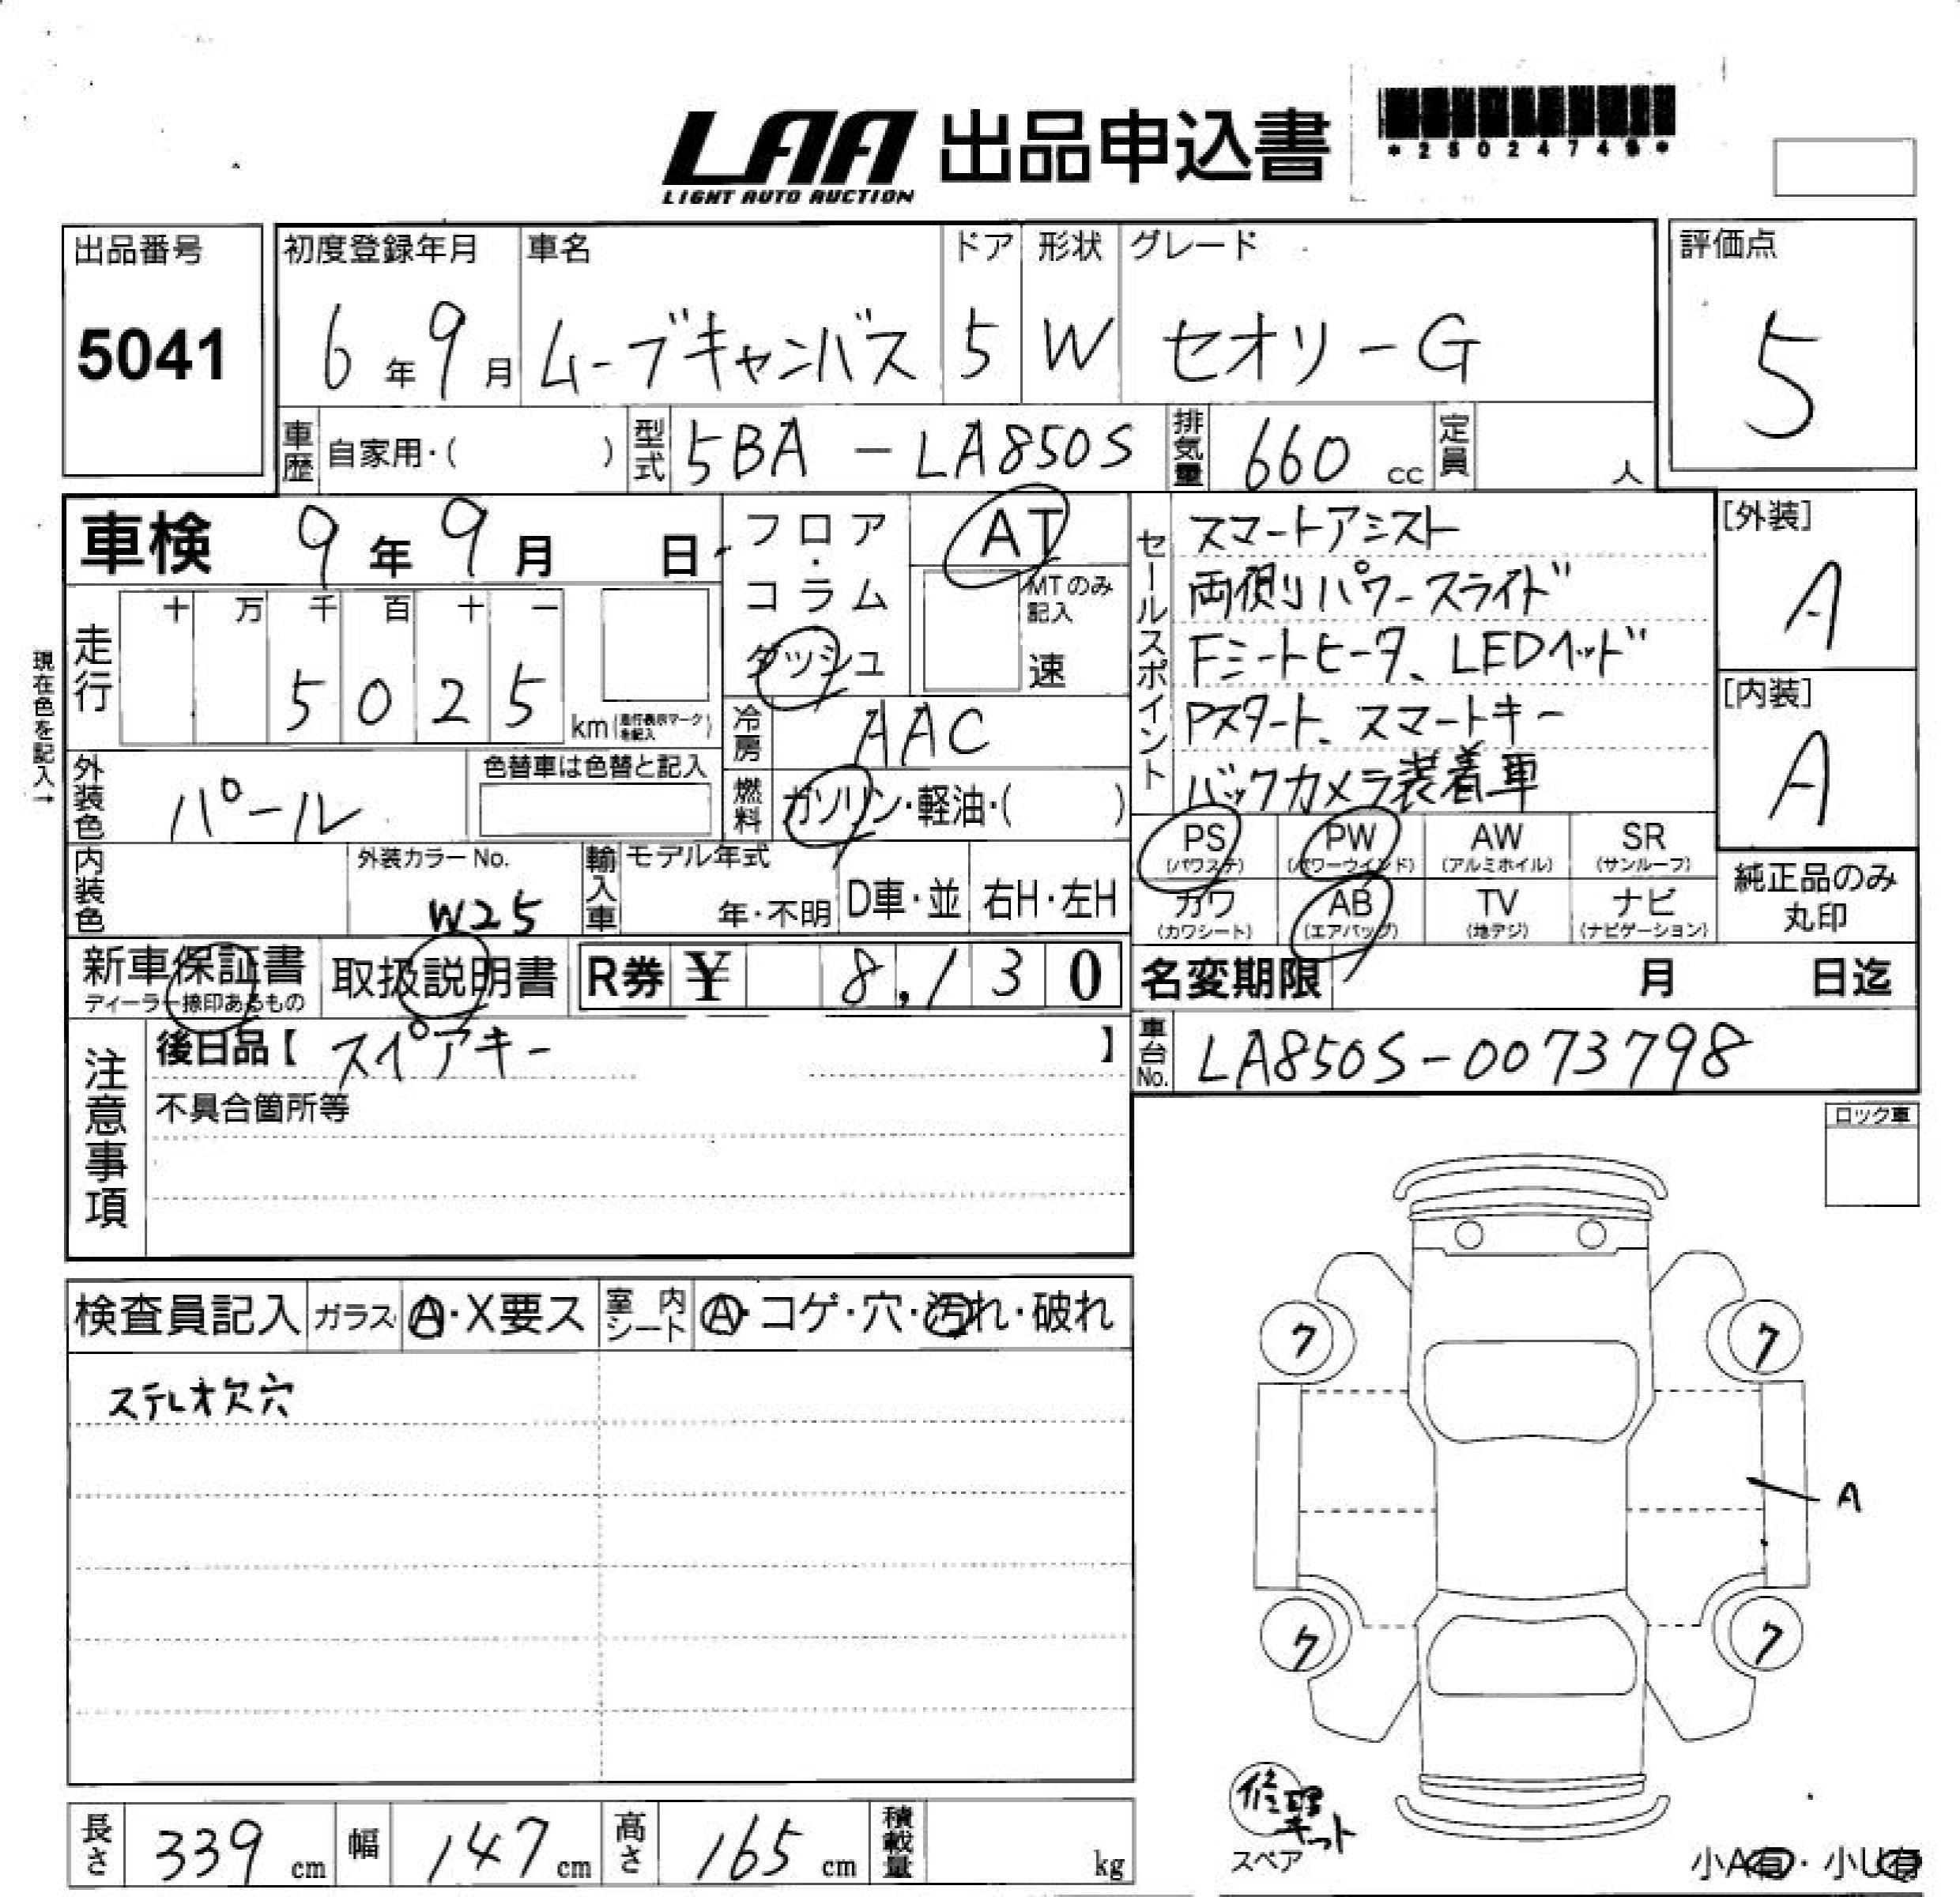 LAA 出品申込書
LIGHT AUTO AUCTION
出品番号
5041
初度登録年月 車名 ドア 形状 グレード
6年9月 ムーブキャンバス 5 W セオリーG
評価点
5
車歴 自家用・( ) 型式 5BA－LA850S 排気量 660 cc 定員 人
車検 9年9月 日
フロア・コラム ダッシュ
AT
MTのみ記入
速
セールスポイント
スマートアシスト
両側パワースライド
Fシートヒータ、LEDヘッド
Pスタート、スマートキー
バックカメラ装着車
[外装]
A
[内装]
A
現在色を記入→
走行 十 万 千 百 十 一
5 0 2 5 km(走行表示マークを記入)
冷房 AAC
外装色 パール 色替車は色替と記入
燃料 ガソリン・軽油・( )
PS (パワステ) PW (パワーウインド) AW (アルミホイル) SR (サンルーフ)
カワ (カワシート) AB (エアバッグ) TV (地デジ) ナビ (ナビゲーション)
純正品のみ
丸印
内装色 外装カラーNo. W25
輸入車 モデル年式 年・不明 D車・並 右H・左H
新車保証書 取扱説明書 R券 ¥ 8,130
ディーラー捺印あるもの
名変期限 月 日迄
車台No. LA850S-0073798
注意事項
後日品【 スペアキー 】
不具合箇所等
ロック車
検査員記入 ガラス A・X要ス 室内シート A・コゲ・穴・汚れ・破れ
ステレオ欠穴
ク ク
A
ク ク
修理キット
スペア
小A有・小U有
長さ 339 cm 幅 147 cm 高さ 165 cm 積載量 kg